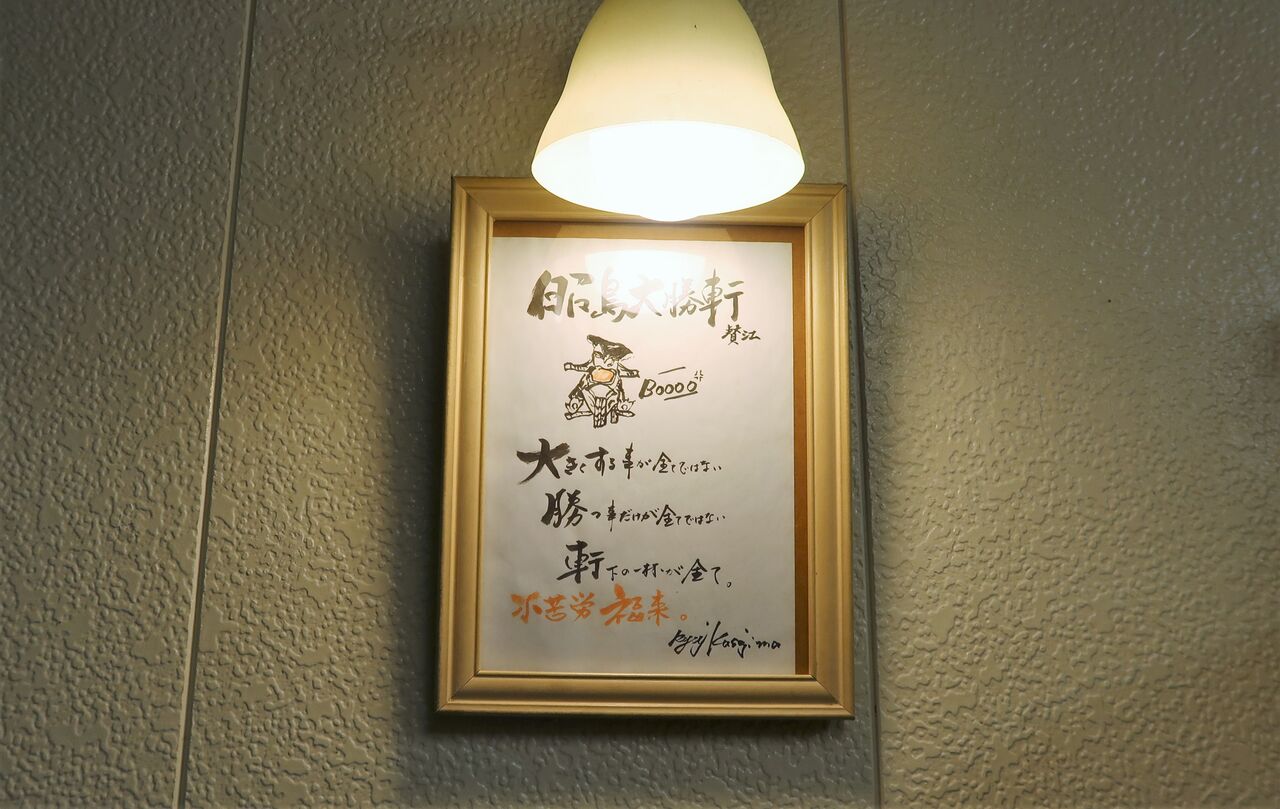 昭島大勝軒
賛江
Boooo
大きくする事が全てではない
勝つ事だけが全てではない
軒下の一杯が全て。
小苦労福来。
Ryuji Kasajima